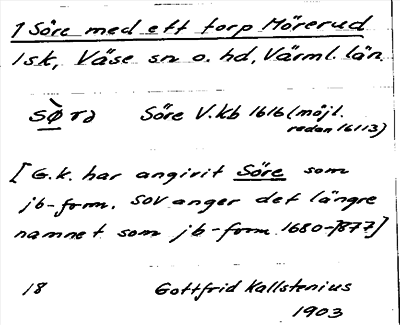 1 Söre med ett torp Mörerud
1 sk, Väse sn o. hd, Värml. län
sø̀rə Söre V.Kb 1616 (möjl.
redan 1611 3)
[G.K. har angivit Söre som
jb-form. SOV anger det längre
namnet som jb-form 1680-1877]
18 Gottfrid Kallstenius
1903